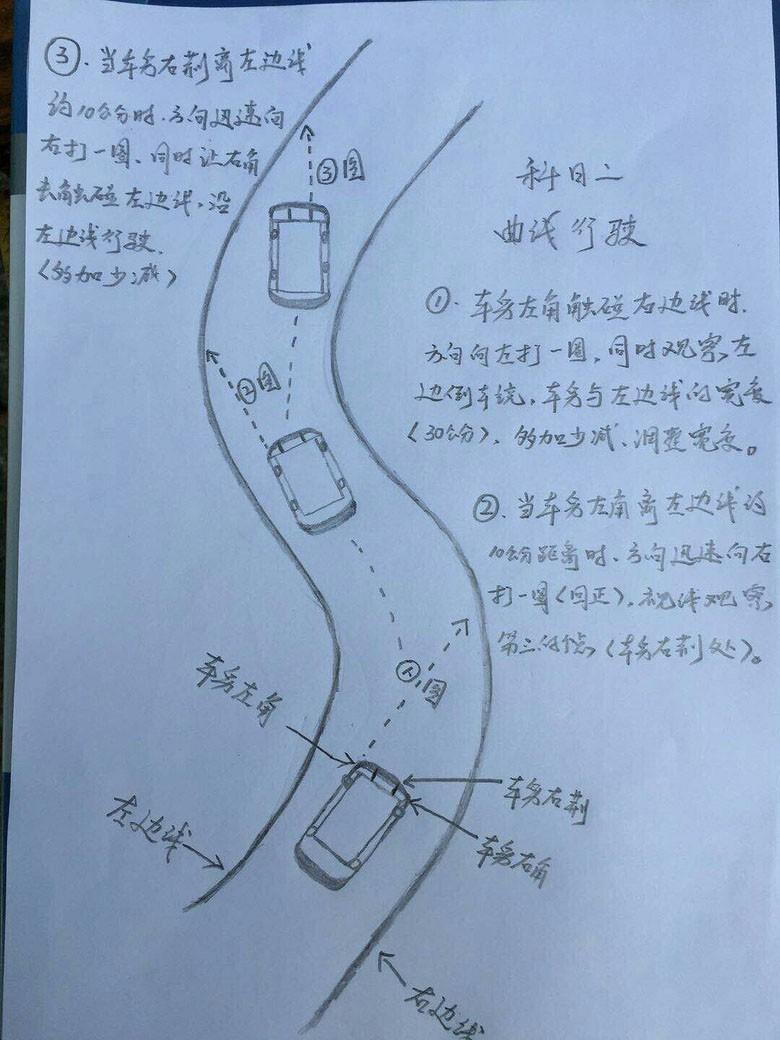 科目二
曲线行驶
①. 车身左角触碰右边线时.
方向向左打一圈, 同时观察左
边倒车镜, 车身与左边线的宽度
(30公分), 多加少减、调整宽度。
②. 当车身左角离左边线约
10公分距离时. 方向迅速向右
打一圈(回正), 视线观察
第三个点, (车身右荆处)。
③. 当车身右荆离左边线
约10公分时. 方向迅速向
右打一圈、同时让右角
去触碰左边线, 沿
左边线行驶.
(多加少减)
③圈
②圈
①圈
车身左角
左边线
车身右荆
车身右角
右边线